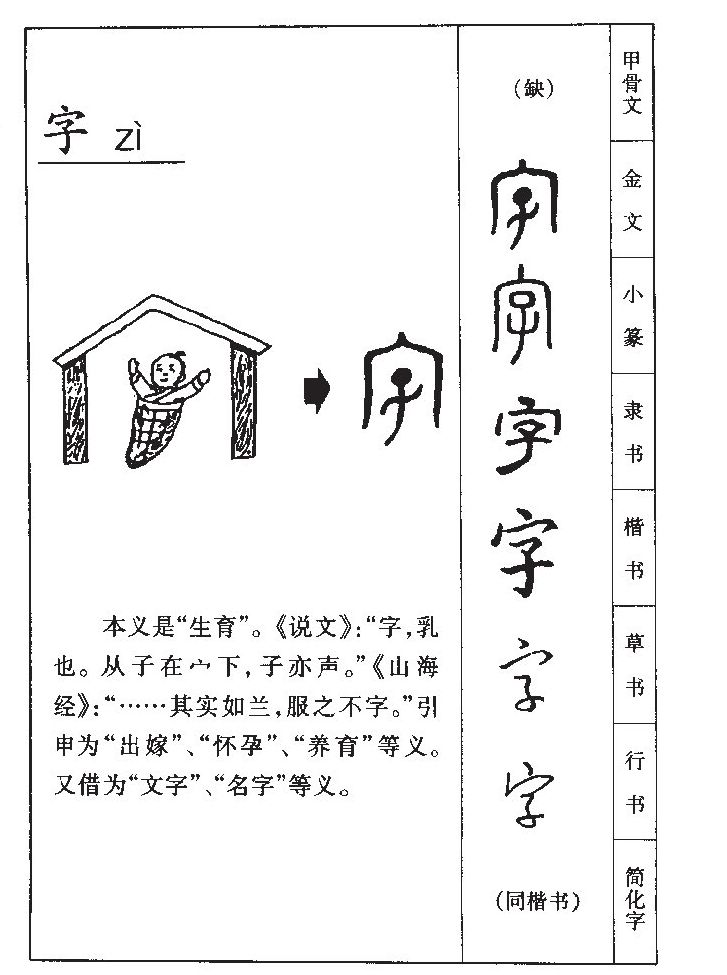 字 zì
字
本义是“生育”。《说文》：“字，乳
也。从子在宀下，子亦声。”《山海
经》：“……其实如兰，服之不字。”引
申为“出嫁”、“怀孕”、“养育”等义。
又借为“文字”、“名字”等义。
（缺）
字
字
字
字
字
字
（同楷书）
甲骨文
金文
小篆
隶书
楷书
草书
行书
简化字